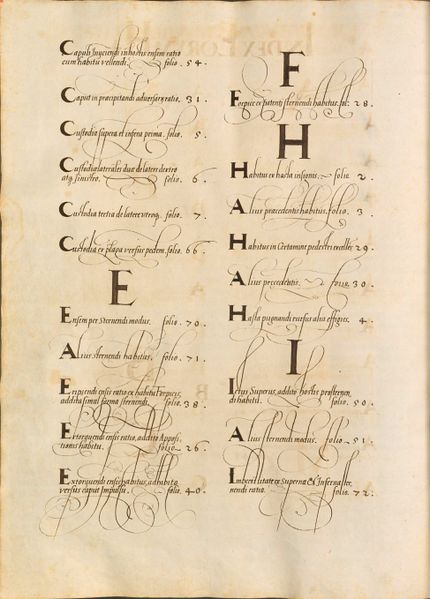 Capuli Inyciendi in hostis ensem ratio
eum habitū vellendi. folio . 54.
Caput in praecipitandi adversary ratio . 31 .
Custodia supera et infera prima . folio . 5 .
Custodia laterales duae de latere dextro
atq sinistro . folio . 6 .
Custodia tertia de latere utroq . folio . 7 .
Custodia ex plaga versus pedem . folio . 66
E
Ensem per Sternendi modus . folio . 70 .
Alius sternendi habitus . folio . 71 .
Eripiendi ensis ratio ex habitu
additu simul forma sternendi . folio . 38 .
Extorquendi ensis ratio, addito
tionis habitu . folio . 26 .
Extorquendi ensis habitus, adhibito
versus caput Impulsu . folio . 40 .
F
28 .
H
Habitus ex hasta insignis . folio . 2 .
Alius praecedentis habitus . folio . 3 .
Habitus in Certamine pedestri 29 .
Alius precedentis . folio . 30 .
Hasta pugnandi rursus alia effigies . 4 .
I
Ictus Superus, addito hostis prosternen
di habitu . folio . 50 .
Alius sternendi modus . folio . 51 .
Superna & Inferna
nendi ratio . folio . 72 .